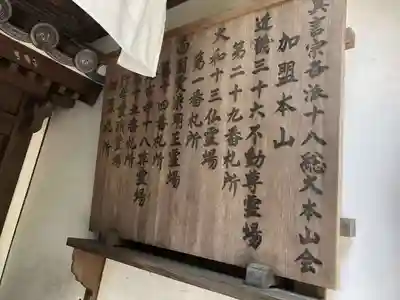 真言宗各派十八総大本山会
加盟本山
近畿三十六不動尊霊場
第二十九番札所
大和十三仏霊場
第一番札所
西国愛染明王霊場
第十四番札所
札所